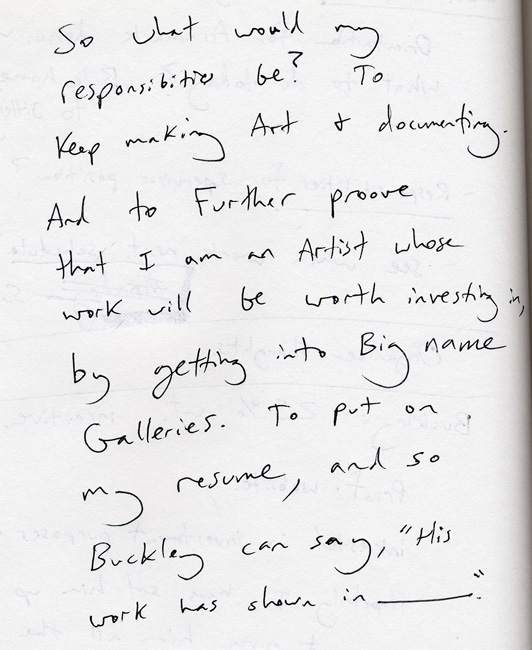 So what would my
responsibities be? To
Keep making Art + documenting.
And to Further proove
that I am an Artist whose
work will be worth investing in,
by getting into Big name
Galleries. To put on
my resume, and so
Buckley can say, "His
work has shown in ______."